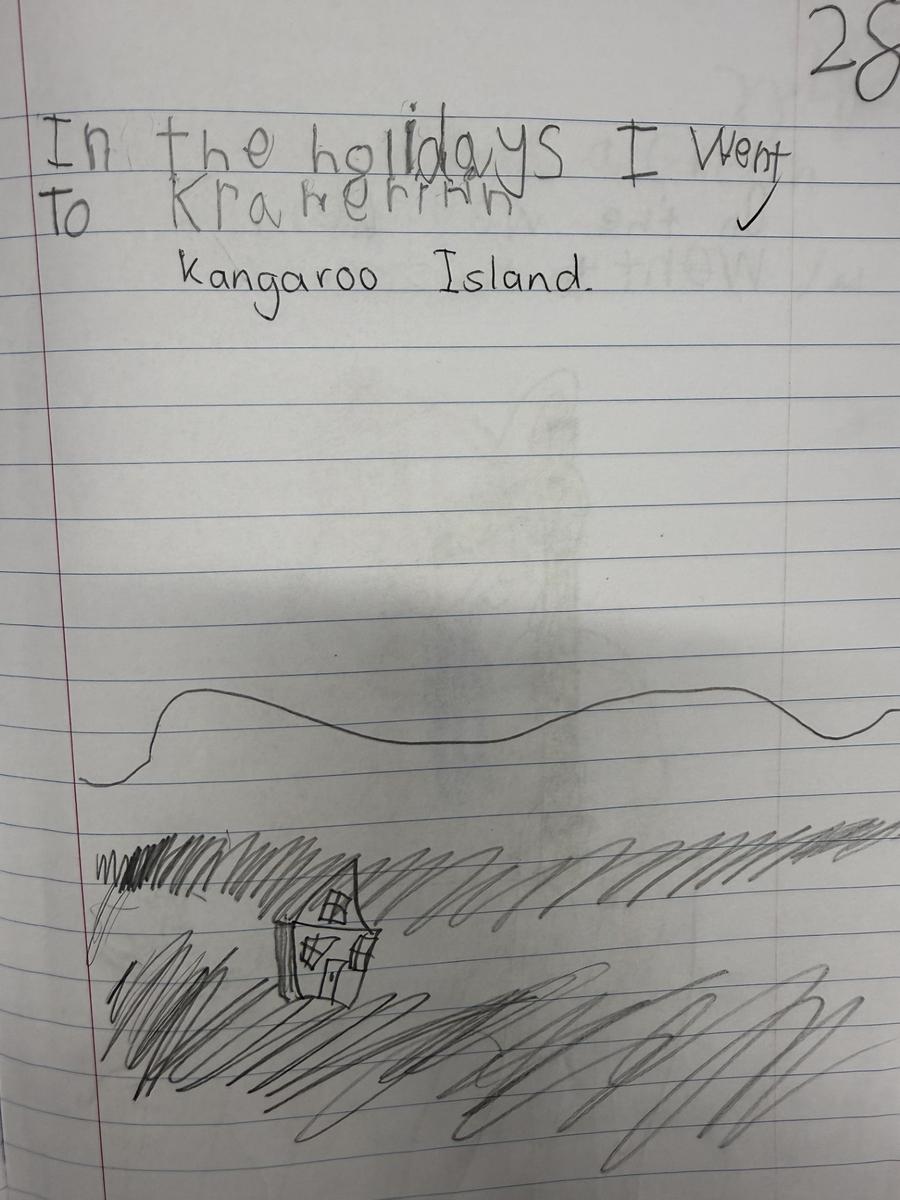 28
In the holidays I Went
To
Kangaroo Island.